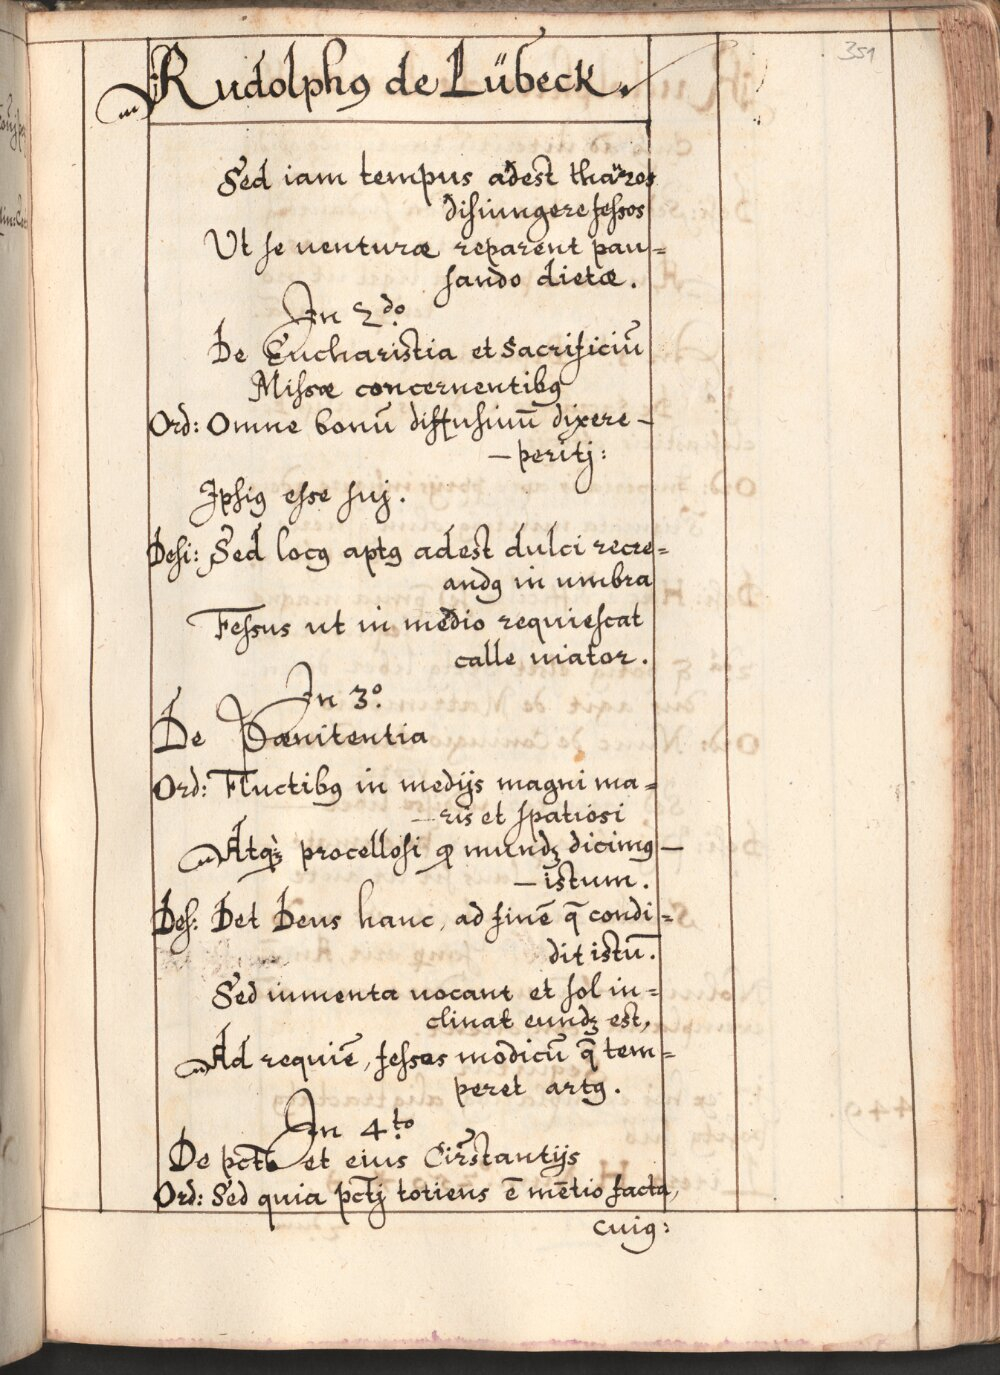 351
Rudolphꝰ de Lübeck.
Sed iam tempus adest tharos
disiungere fessos
Ut se venturæ reparent pau=
sando dietæ.
In 2do.
De Eucharistia et Sacrificiū
Missæ concernentibꝰ
Ord: Omne bonū diffusiuū dixere –
– peritj:
Ipsiꝰ esse suj.
Desi: Sed locꝰ aptꝰ adest dulci recre=
andꝰ in umbra
Fessus ut in medio requiescat
calle uiator.
In 3o.
De Pænitentia
Ord: Fluctibꝰ in medijs magni ma=
– ris et spatiosi
Atqꝫ procellosi ꝙ mundꝫ dicimꝰ –
– istum.
Des: Det Deus hanc, ad finē q̄ condi=
dit istū.
Sed iumenta uocant et sol in=
clinat eundꝫ est,
Ad requiē, fessos modicū q̄ tem=
peret artꝰ.
In 4to.
De pctō et eius Cirstantijs
Ord: Sed quia pctj totiens ē mētio facta,
cuiꝰ: